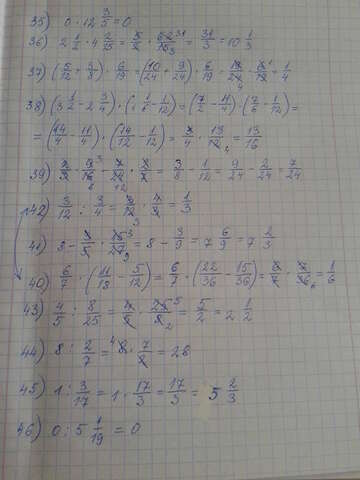 35) 0 · 12 3/5 = 0
36) 2 1/2 · 4 2/15 = 5/2 · 62 31/15 3 = 31/3 = 10 1/3
37) (5/12 + 3/8) · 6/19 = (10/24 + 9/24) · 6/19 = 19/24 4 · 6 1/19 = 1/4
38) (3 1/2 - 2 3/4) · (1 1/6 - 1/12) = (7/2 - 11/4) · (7/6 - 1/12) =
= (14/4 - 11/4) · (14/12 - 1/12) = 3/4 · 13/12 4 = 13/16
= 3/8 - 1/12 = 9/24 - 2/24 = 7/24
42) 3/12 : 3/4 = 3/12 3 · 4/3 = 1/3
41) 8 - 3/5 · 15 3/27 9 = 8 - 3/9 = 7 6/9 = 7 2/3
40) 6/7 · (11/18 - 5/12) = 6/7 · (22/36 - 15/36) = 6/7 · 7/36 6 = 1/6
43) 4/5 : 8/25 = 4/5 · 25 5/8 2 = 5/2 = 2 1/2
44) 8 : 2/7 = 4 8 · 7/2 = 28
45) 1 : 3/17 = 1 · 17/3 = 17/3 = 5 2/3
46) 0 : 5 1/19 = 0